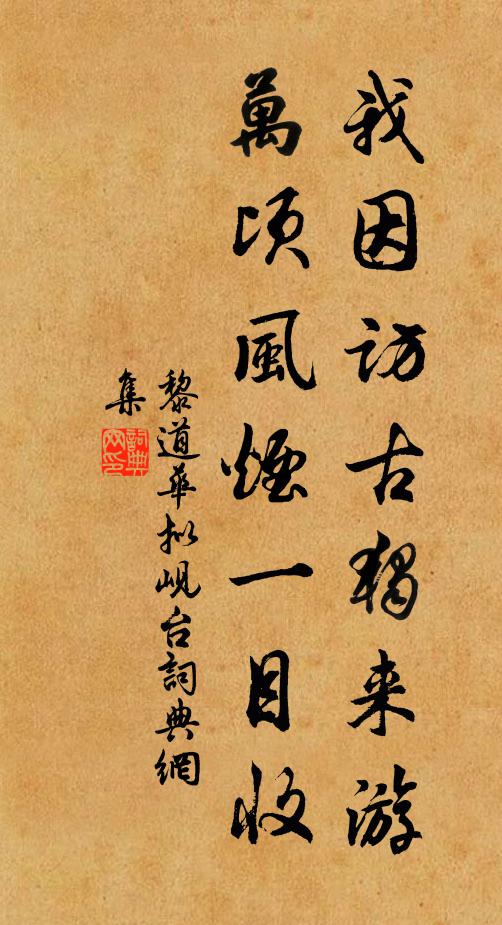 我因訪古獨来游
萬頃風煙一目收
黎道華拟峴台詞典網
集
詞典
网印